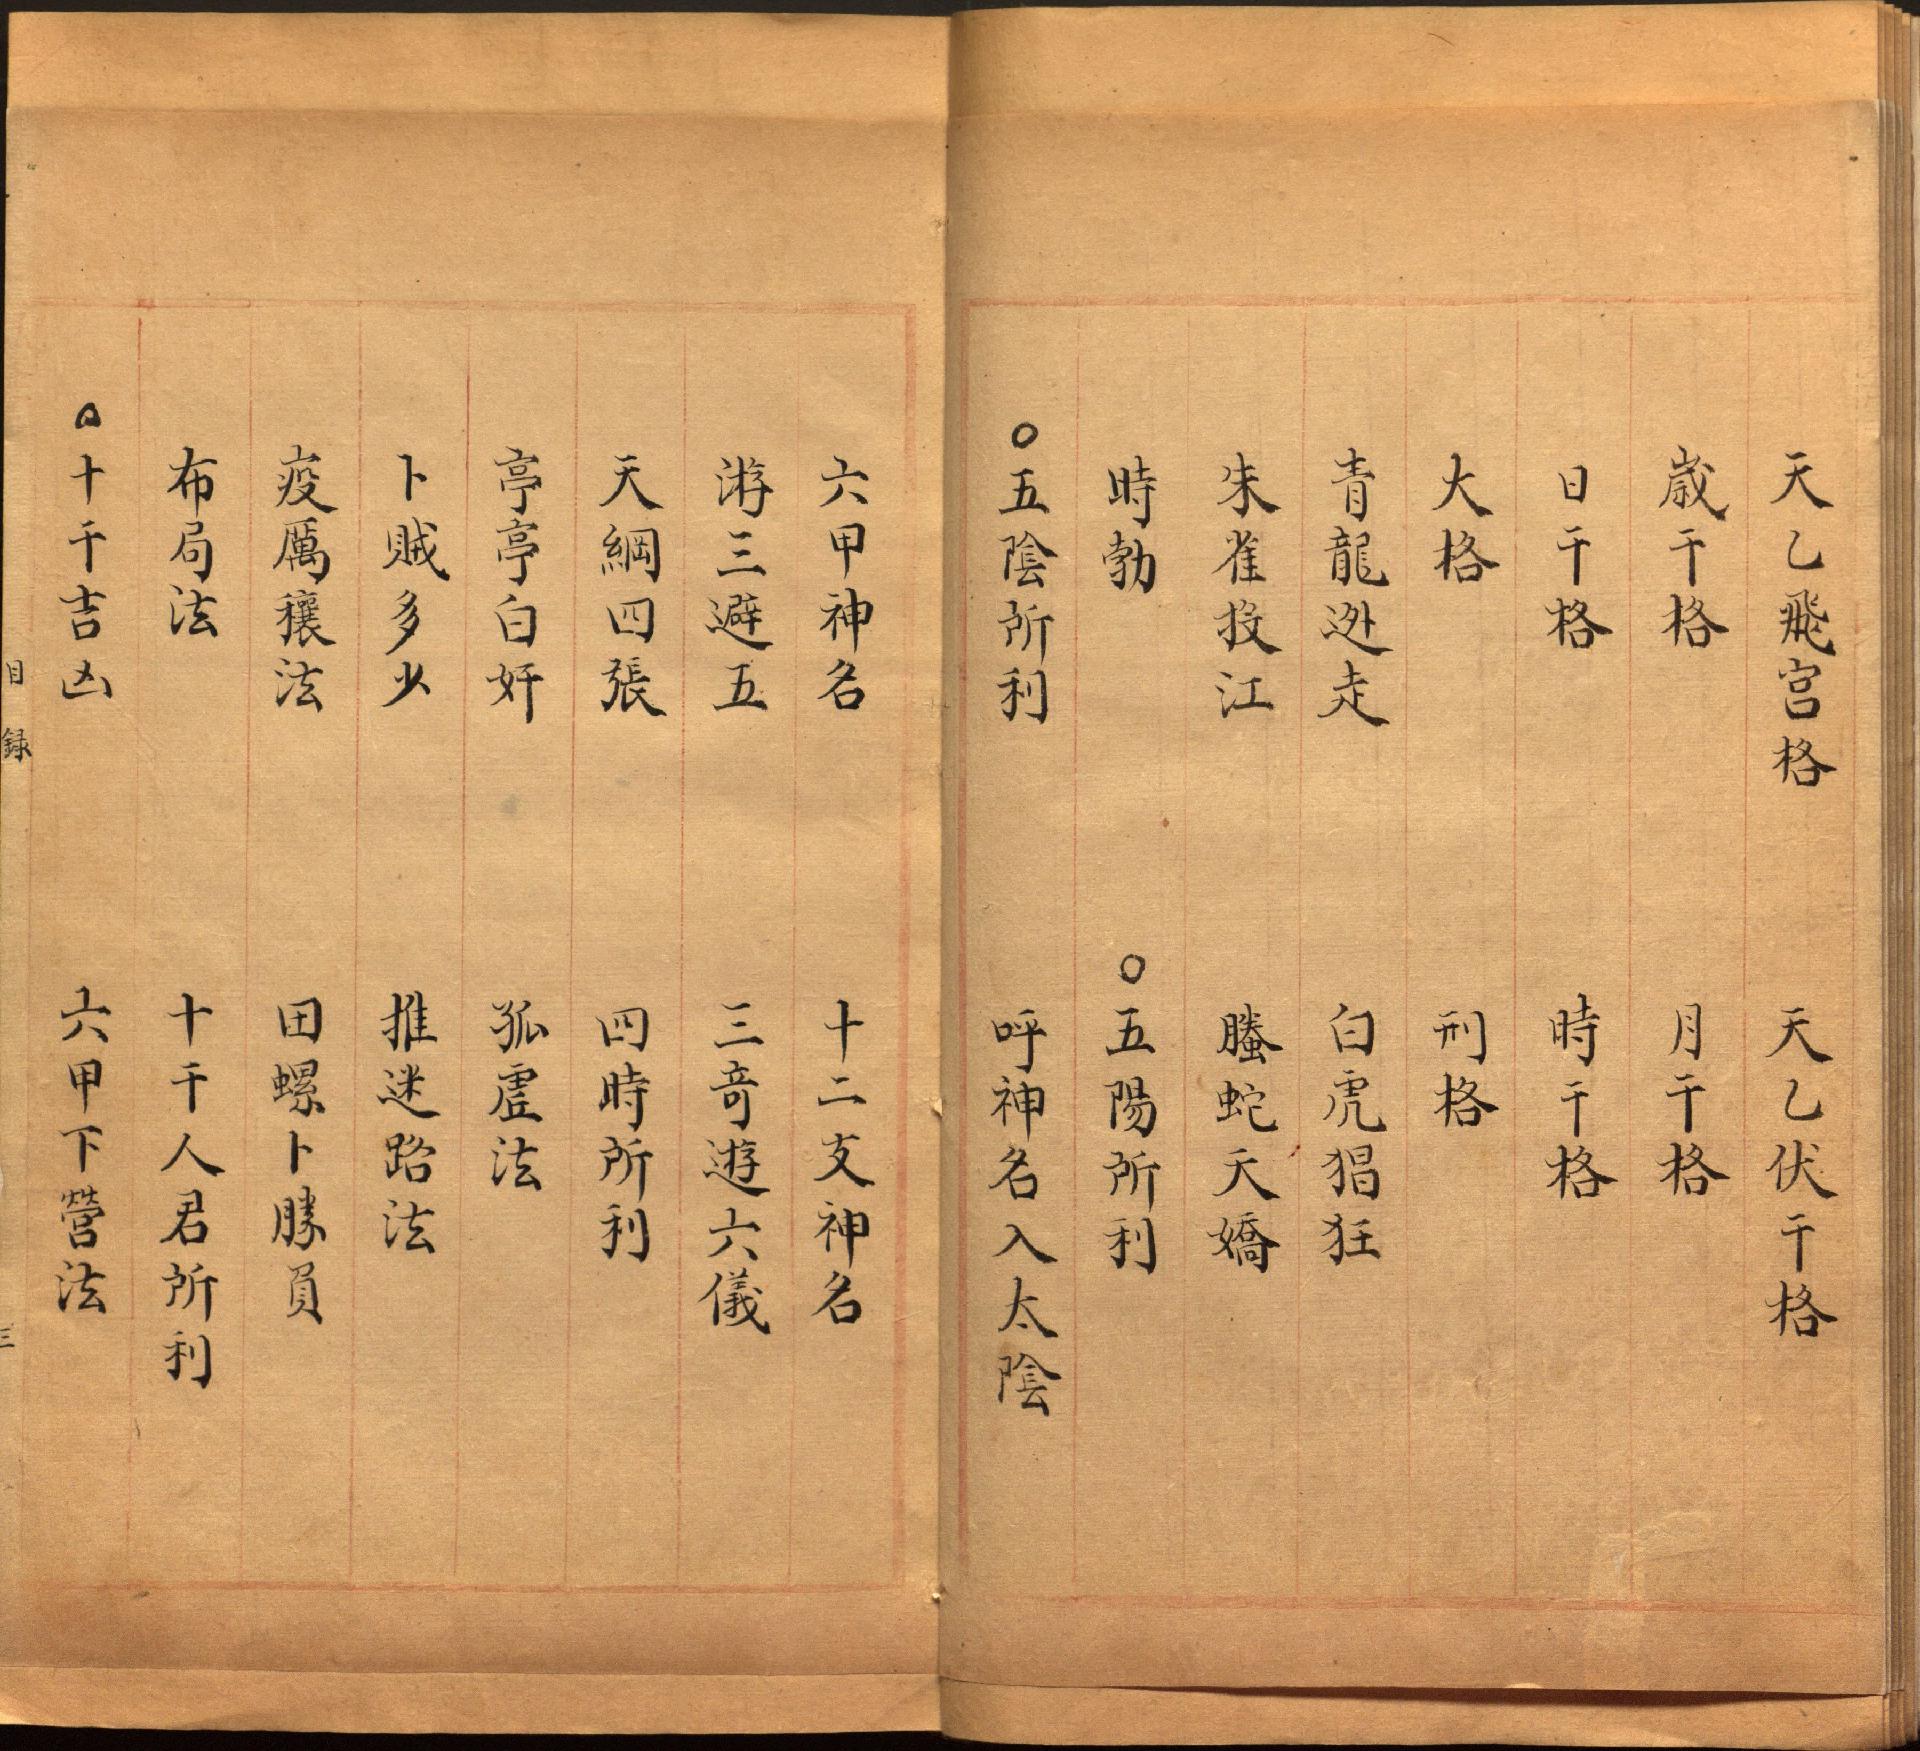 天乙飛宮格　天乙伏干格
歲干格　月干格
日干格　時干格
大格　刑格
青龍迯走　白虎猖狂
朱雀投江　螣蛇天嬌
時勃　○五陽所利
○五陰所利　呼神名入太陰
六甲神名　十二支神名
游三避五　三奇遊六儀
天綱四張　四時所利
亭亭白奸　孤虛法
卜賊多少　推迷路法
疫厲穰法　田螺卜勝負
布局法　十干人君所利
○十干吉凶　六甲下營法
目錄　三